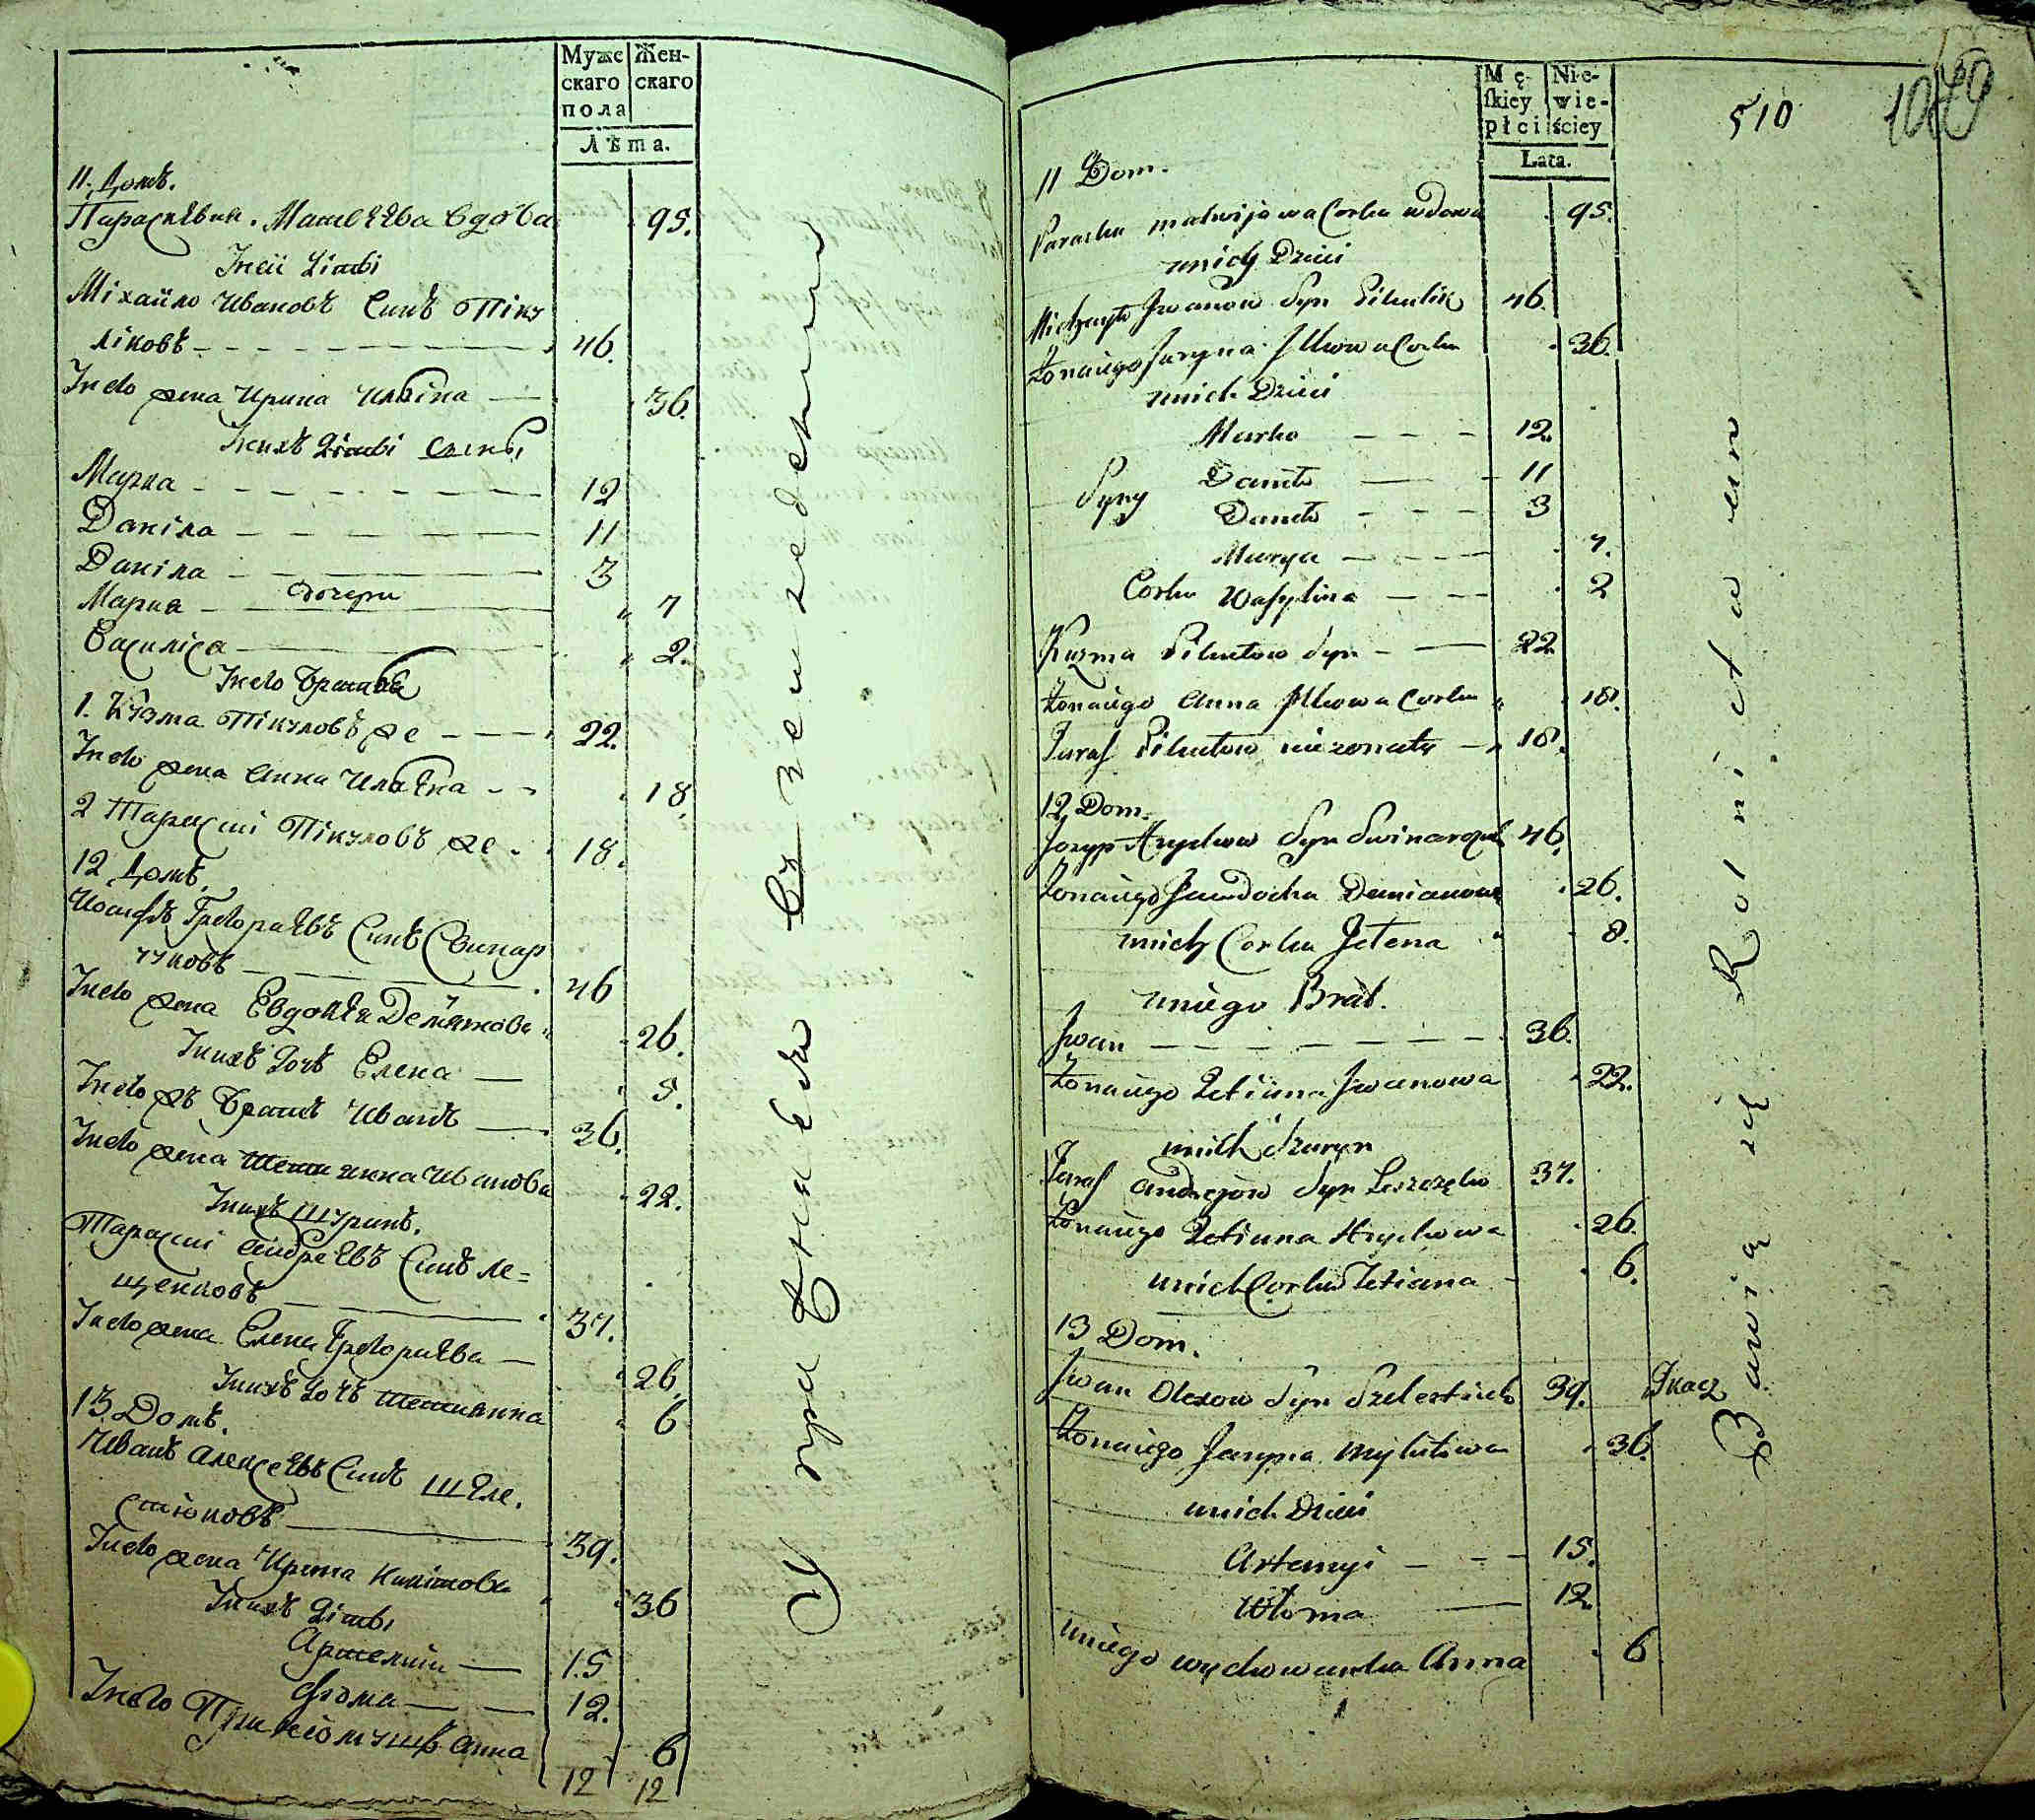 Муже
скаго
пола
Жен-
скаго
Лѣта.
11. Домъ.
Параскевия. Матвѣева вдова 95.
У неи дѣти
Міхайло Ивановъ Синъ Піку
ліковъ 46.
У него жена Ирина Ильіна 36.
У нихъ дѣти сыны
Марка 12
Даніла 11
Даніла 3
дочери
Мария 7
Василіса 2.
У него брата
1. Кузма Пікуловъ же 22.
У него жена Анна Ильѣна 18
2 Тарасій Пікуловъ же 18.
12 Домъ.
Иосифъ Григориевъ Синъ Свинар
чуковъ 46
У него жена Евдокѣя Демянова 26.
У нихъ дочь Елена 8.
У него жъ братъ Иванъ 36.
У него жена Тетиянна Иванова 22.
У нихъ Шуринъ.
Тарасій Андреевъ Синъ Ле=
щенковъ 37.
У него жена Елена Григориева 26.
У нихъ дочь Тетиянна 6
13 Домъ.
Иванъ Алексеевъ Синъ Шеле.
стюковъ 39.
У него жена Ирина Милютова 36
У нихъ дѣти
Артемий 15
Фома 12.
У него Приіомушъ Анна 6
12 12
Упражняется въ земледении
Mę-
ſkiey
płci
Nie-
wie-
ściey
Lata.
510
1079
11 Dom.
Paraska Matwijowa Corka wdowa 95.
u nich Dzieci
Michayło Jwanow Syn Pikulik 46.
Żona iego Jaryna Jllowa Corka 36.
u nich Dzieci
Marko 12.
Syny Daniło 11
Daniło 3
Marya 7.
Corka Wasylina 2
Kuzma Pikułow Syn 22.
Żona iego Anna Jllowa Corka 18.
Taras Pikułow nie zonaty 18.
12 Dom.
Jozyp Hryckow Syn Swinarczuk 46.
Żona iego Jawdocha Demianowa 26.
u nich Corka Jełena 8.
u niego Brat.
Jwan 36.
Żona iego Tetianna Jwanowa 22.
u nich Szuryn
Taras Andrejow Syn Leszczeko 37.
Żona iego Tetianna Hryckowa 26.
u nich Corka Tetiana 6.
13 Dom.
Jwan Olexow Syn Szelestiuk 39. Tkacz
Żona iego Jaryna Mylutowa 36.
u nich Dzieci
Artemyi 15.
Choma 12.
u niego wychowanka Anna 6
Bawią się Rolnictwem